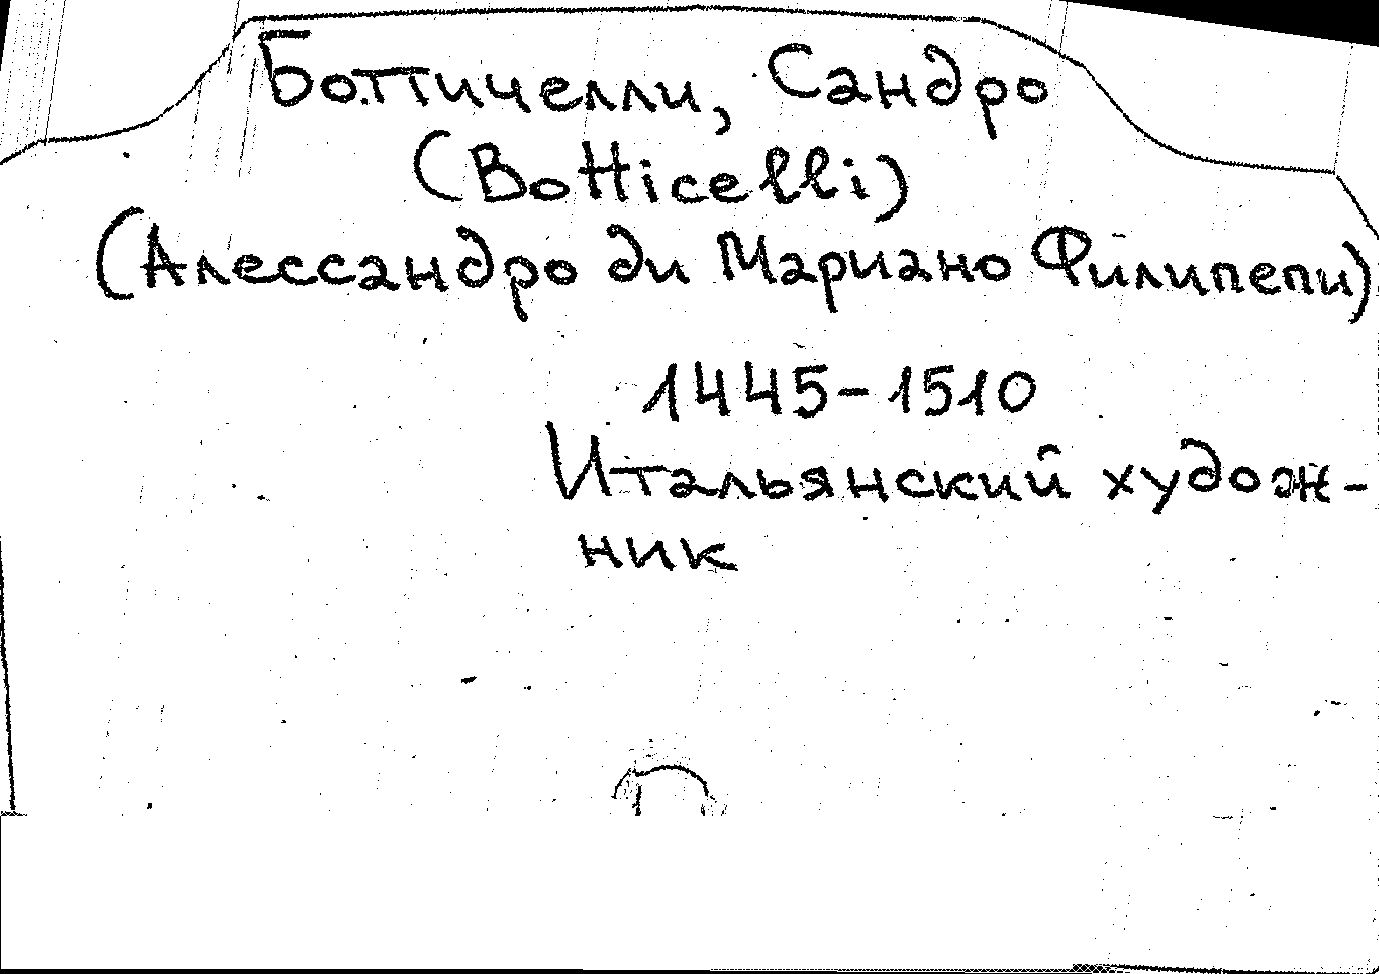 Боттичелли, Сандро
(Botticelli)
(Алессандро ди Мариано Филипепи)
1445-1510
Итальянский худож-
ник